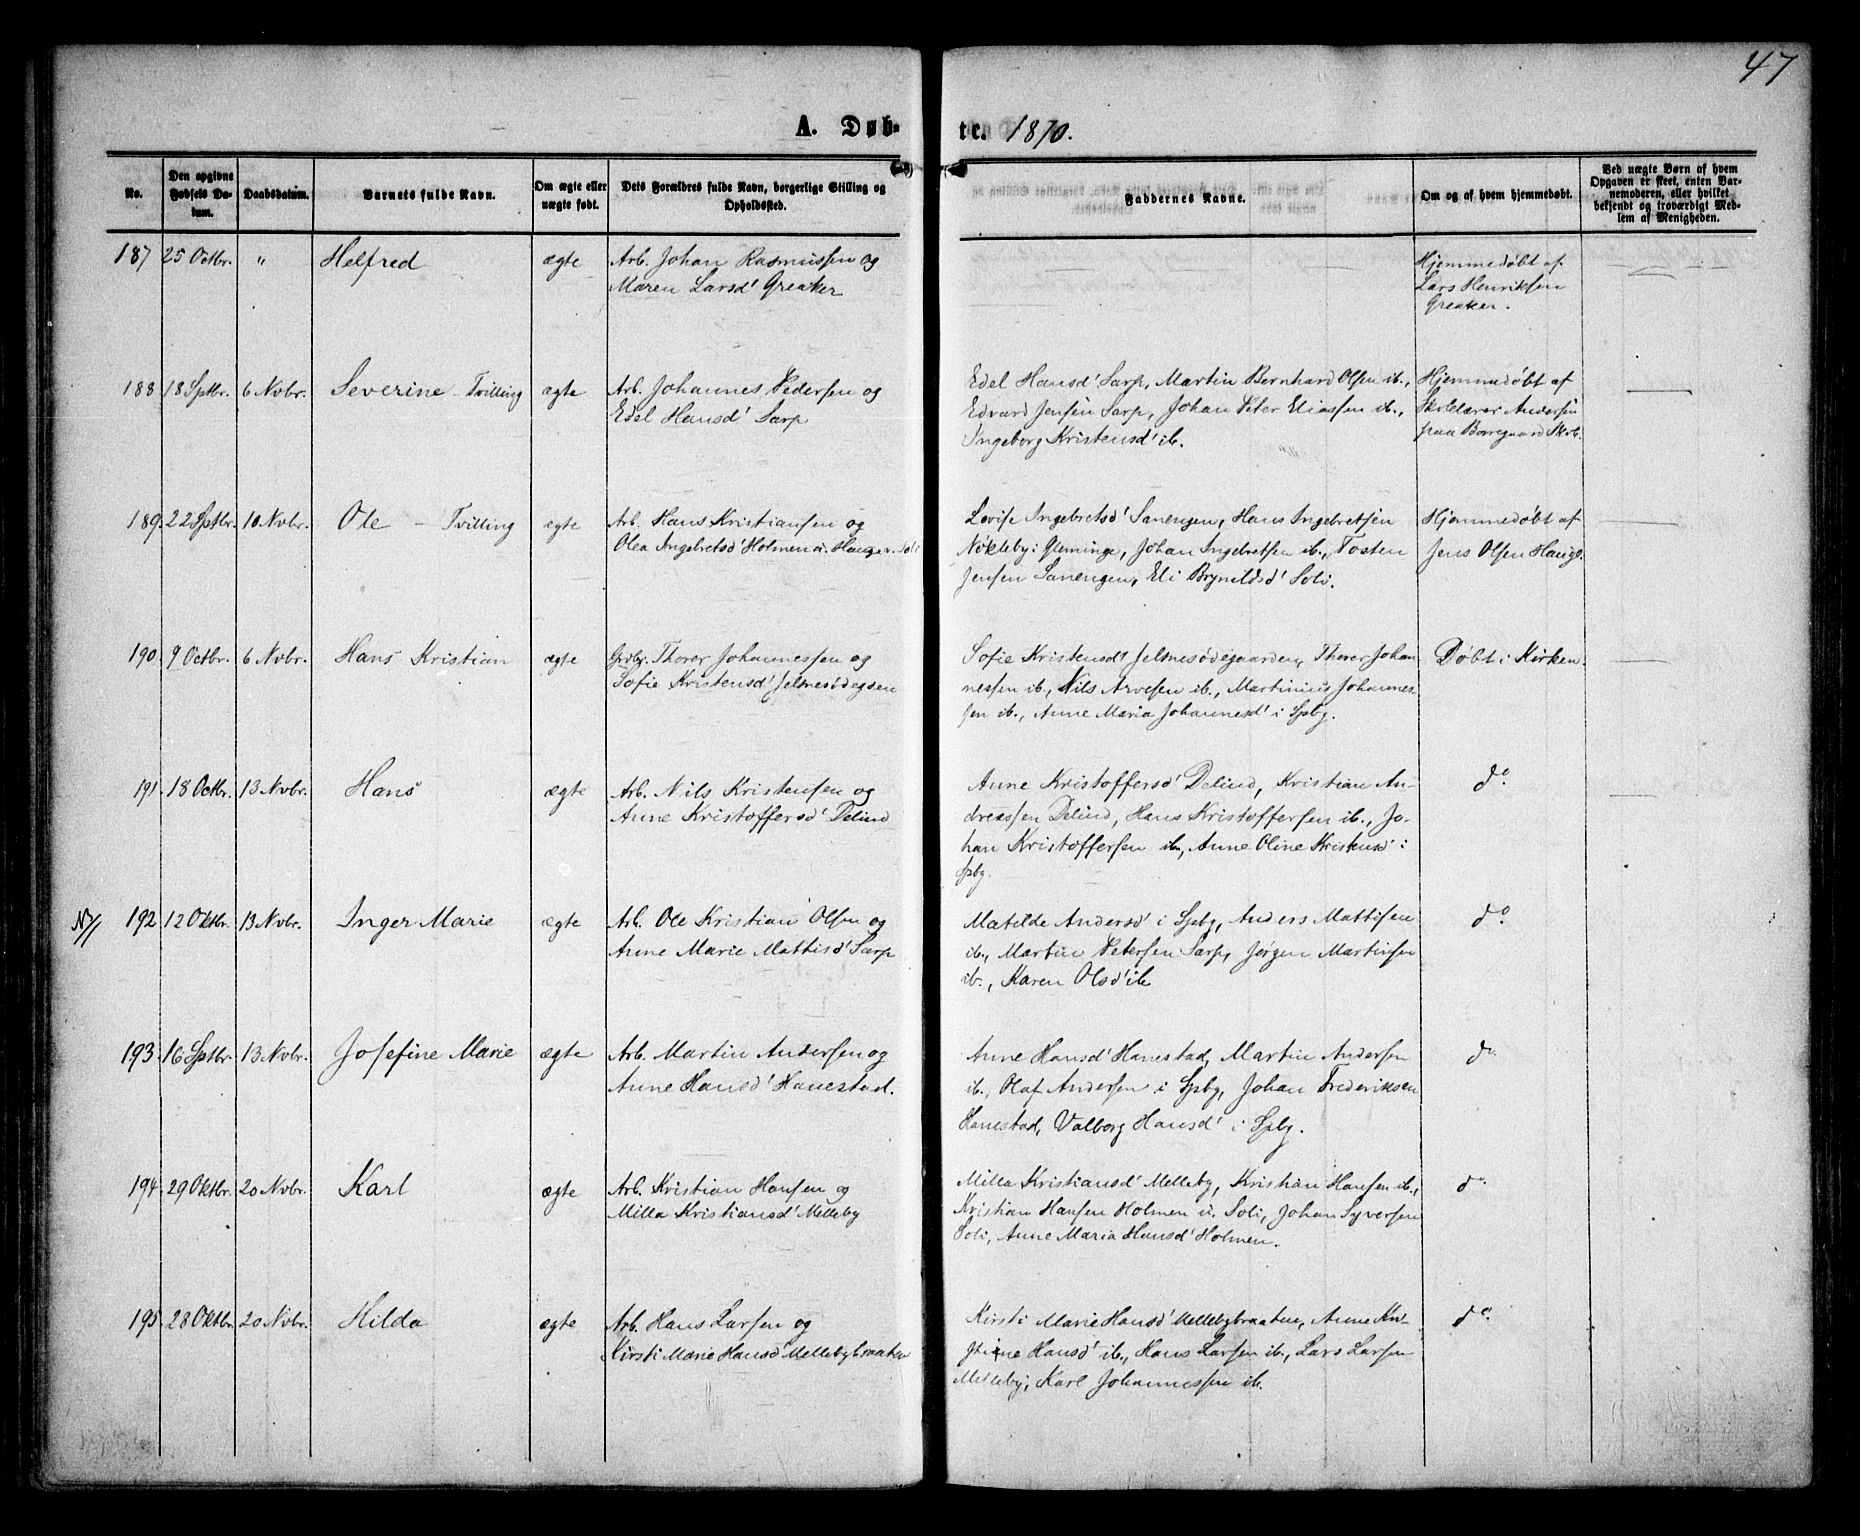 47
A. Døb- te. 1870.
No.
Den opgivne Fødsels Da-tum.
Daabsdatum.
Barnets fulde Navn.
Om ægte eller uægte født.
Dets Forældres fulde Navn, borgerlige Stilling og Opholdssted.
Faddernes Navne.
Om og af hvem hjemmedøbt.
Ved uægte Børn af hvem Opgaven er skeet, enten Bar-nemoderen, eller hvilket bekjendt og troværdigt Med-lem af Menigheden.
187 25 Octbr. " Helfred ægte Arb. Johan Rasmussen og
Maren Larsd' Greaker
Hjemmedøbt af
Lars Henriksen
Greaker.
188 18 Sptbr. 6 Novbr. Severine - Tvilling ægte Arb. Johannes Pedersen og
Edel Hansd' Sarp
Edel Hansd' Sarp, Martin Bernhard Olsen ib.,
Edvard Jensen Sarp, Johan Peter Eliassen ib.,
Ingeborg Kristensd' ib.
Hjemmedøbt af
Skolelærer Andersen
paa Borregaard Skb.
189. 22 Sptbr. 10 Novbr. Ole - Tvilling ægte Arb. Hans Kristiansen og
Olea Ingebretsd' Holmen u. Hauge v. Soli
Lovise Ingebretsd' Sanengen, Hans Ingebretsen
Nøkleby i Glemminge, Johan Ingebretsen ib., Tosten
Jensen Sanengen, Eli Brynildsd' Soli.
Hjemmedøbt af
Jens Olsen Hauge.
190. 9 Octbr. 6 Novbr. Hans Kristian ægte Grdbr. Thorer Johannessen og
Sofie Kristensd' Jelsnesødegaen
Sofie Kristensd' Jelsnesødegaarden, Thorer Johan
nessen ib., Nils Arvesen ib., Martinius Johannes-
sen ib., Anne Maria Johannesd' i Spbg.
Døbt i Kirken.
191. 18 Octbr. 13 Novbr. Hans ægte Arb. Nils Kristensen og
Anne Kristoffersd' Delind
Anne Kristoffersd' Delind, Kristian An-
dreassen Delind, Hans Kristoffersen ib., Jo-
han Kristoffersen ib., Anne Oline Kristensd' i
Spbg.
do.
192 12 Oktbr. 13 Novbr. Inger Marie ægte Arb. Ole Kristian Olsen og
Anne Marie Mattisd' Sarp
Matilde Andersd' i Spbg, Anders Mattisen
ib., Martin Petersen Sarp, Jørgen Martinsen
ib., Karen Olsd' ib
do.
193. 16 Sptbr. 13 Novbr. Josefine Marie ægte Arb. Martin Andersen og
Anne Hansd' Hanestad.
Anne Hansd' Hanestad, Martin Andersen
ib., Olaf Andersen i Spbg, Johan Frederiksen
Hanestad, Valborg Hansd' i Spbg.
do.
194. 29 Oktbr. 20 Novbr. Karl ægte Arb. Kristian Hansen og
Milla Kristiansd' Melleby
Milla Kristiansd' Melleby, Kristian Hansen ib.,
Kristian Hansen Holmen u. Soli, Johan Syversen
Soli, Anne Maria Hansd' Holmen.
do.
195. 28 Oktbr. 20 Novbr. Hilda ægte Arb. Hans Larsen og
Kirsti Marie Hansd' Mellebybraaten
Kirsti Marie Hansd' Mellebybraaten, Anne Kri-
stine Hansd' ib., Hans Larsen ib., Lars Larsen
Melleby, Karl Johannessen ib.
do.